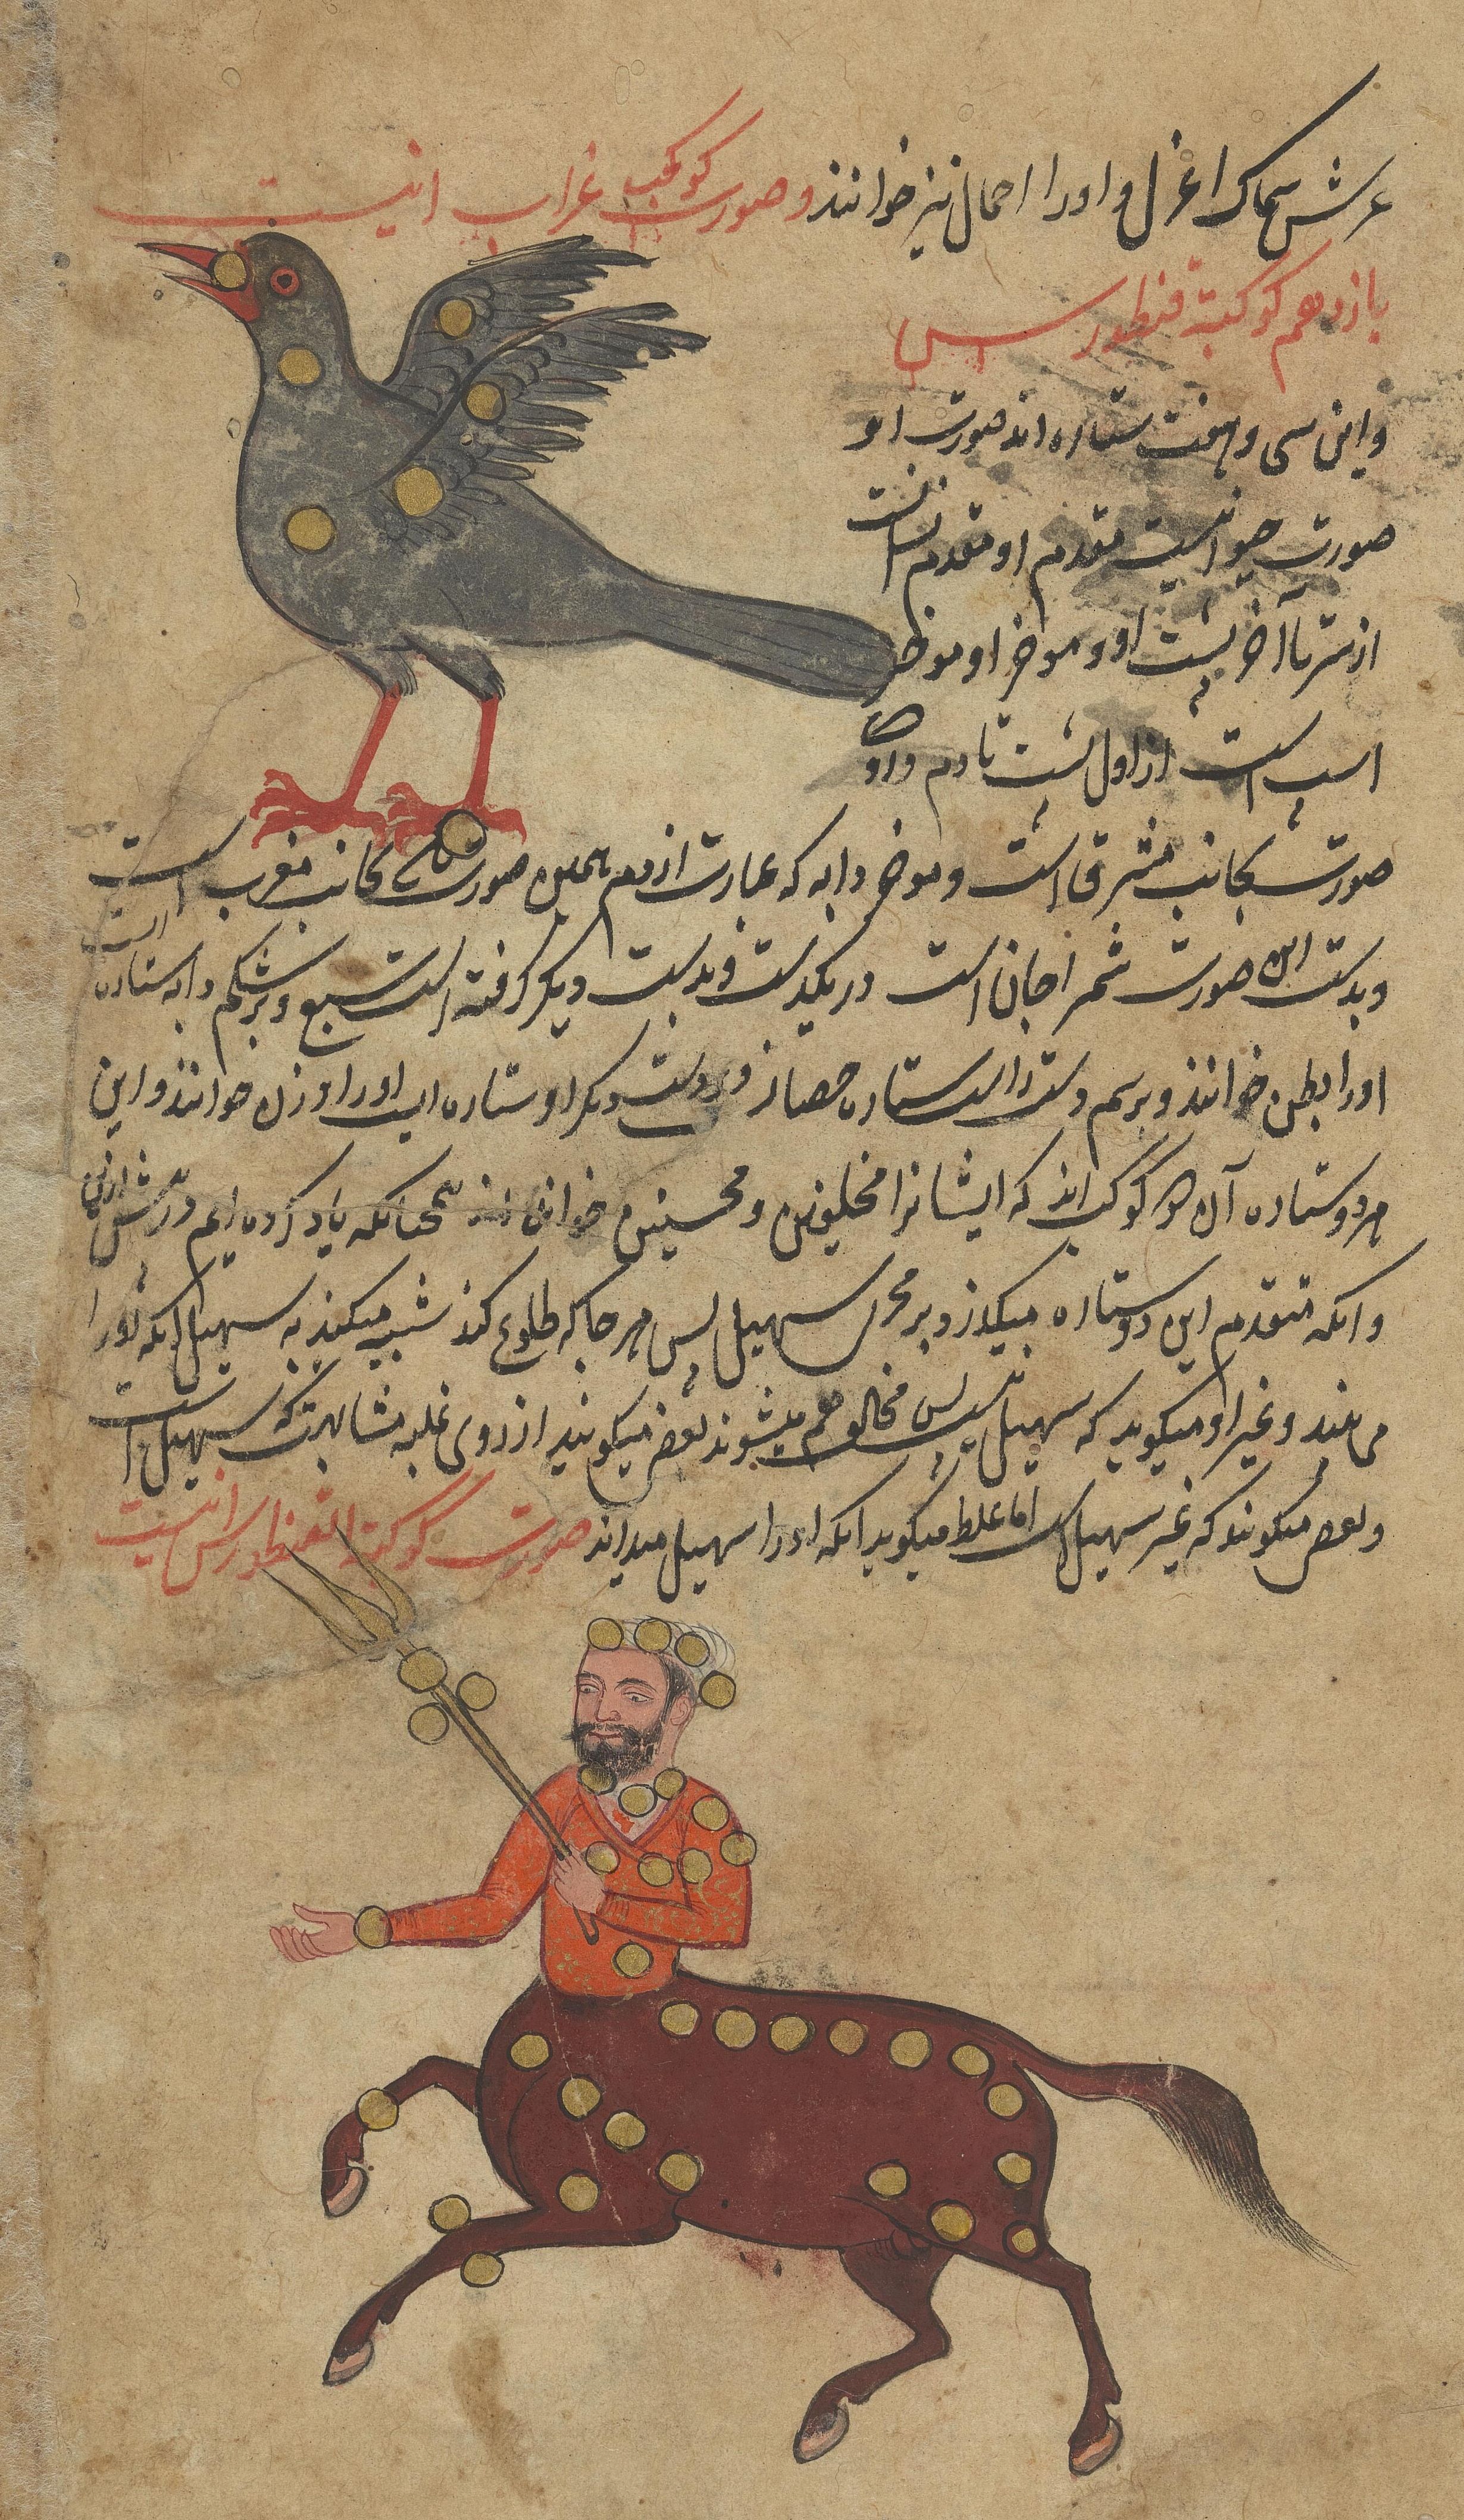 عرش سماک اعزل و اورا احمال نیز خوانند و صورت کوکب غراب اینست
یازدهم کوکبة قنطورس
واین سی وهفت ستاره اند صورت او
صورت حیوانیست مقدم او مقدم انسانست
از سر تا آخر پشت او و موخر او موخر
اسب است از اول پشت تا دم و او
صورت بجانب مشرق است و موخر دابه که عبارت از دم همین صورت بجانب مغرب است
وبدست این صورت است در یکدست و بدست دیگر گرفته است سبع و بر شکم دابه ستاره است
اورا بطن خوانند و بر سم دست راست ستاره حضار و بر دست دیگر او ستاره ایست اورا وزن خوانند و این
هر دو ستاره آن دو کوکب اند که ایشانرا محلفین و محنثین خوانند همچنانکه یاد کرده ایم در پیش ازین
و انکه متقدم این دو ستاره میگذرد بر مجرای سهیل پس هر جا که طلوع کند شبیه میکنند به سهیل انکه اورا
می بیند و غیر او میگوید که سهیل نیست پس مخالف هم میشوند بعض میگویند از روی غلبه مشابهت که سهیل است
و بعض میگویند که غیر سهیل است اما غلط میگوید انکه اورا سهیل میداند صورت کوکبة القنطورس اینست